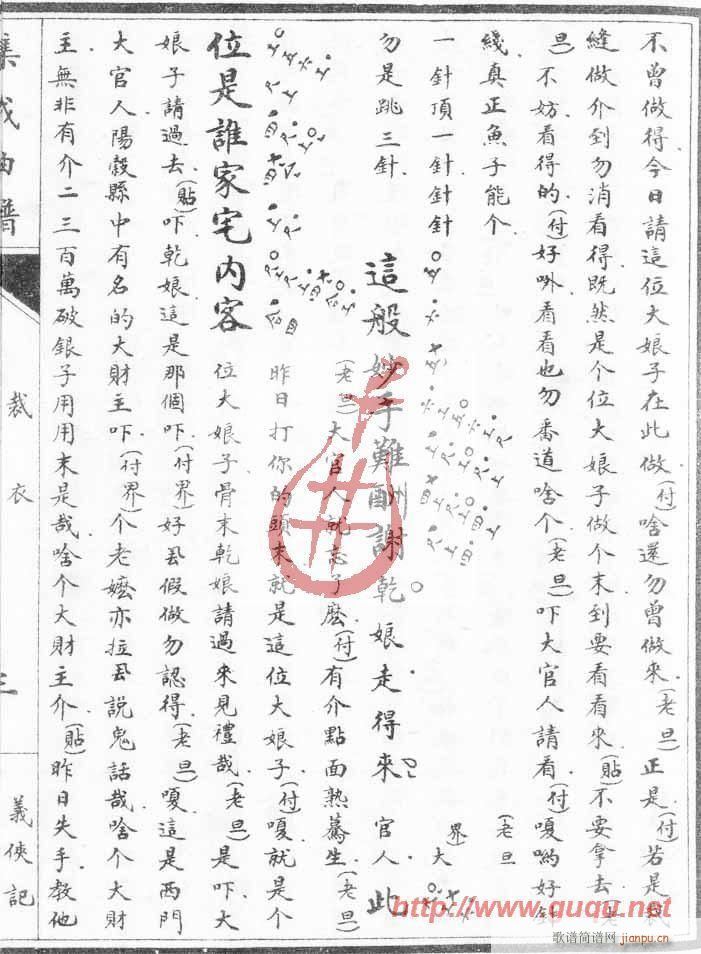 不曾做得今日請這位大娘子在此做(付)啥還勿曾做來(老旦)正是(付)若是裁
縫做介到勿消看得既然是个位大娘子做个末到要看看來(貼)不要拿去(老
旦)不妨看得的(付)好㖸看看也勿番道啥个(老旦)吓大官人請看(付)嗄喲好針
綫真正魚子能个(老旦
一針頂一針針針 界)大
勿是跳三針
這般妙手難酬謝乾娘走得來官人此
(老旦)大官人就忘了麽(付)有介點面熟驀生(老旦)
昨日打你的頭末就是這位大娘子(付)嗄就是个
位是誰家宅內客 位大娘子骨末乾娘請過來見禮哉(老旦)是吓大
娘子請過去(貼)吓乾娘這是那個吓(付界)好丑假做勿認得(老旦)嗄這是西門
大官人陽穀縣中有名的大財主吓(付界)个老嬤亦拉丑說鬼話哉啥个大財
主無非有介二三百萬破銀子用用末是哉啥个大財主介(貼)昨日失手教他
集成曲譜
裁衣
三
義俠記
http://www.ququ.net
歌谱简谱网
jianpu.cn